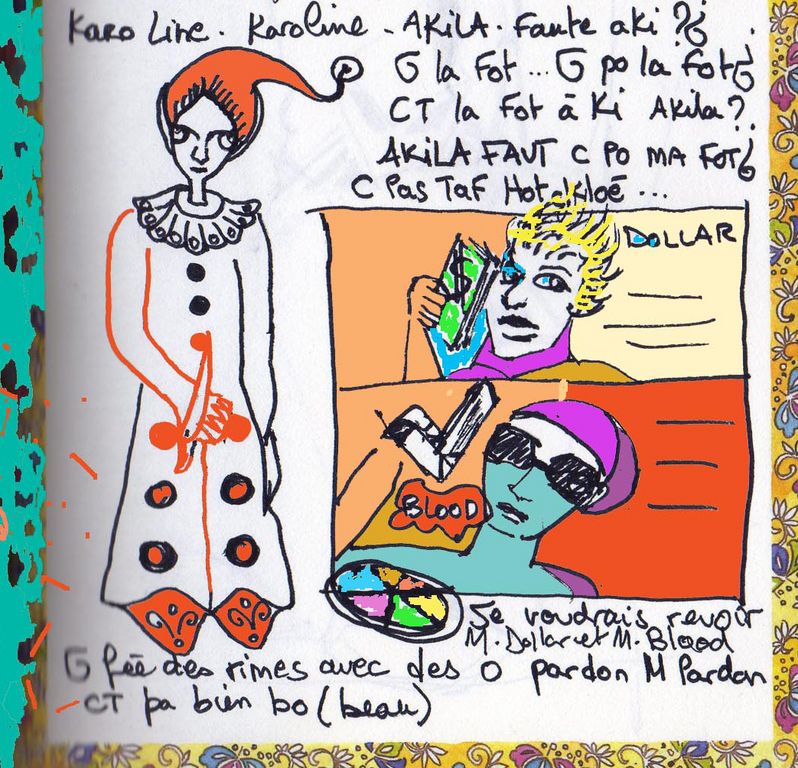 Karo Line. Karoline - AKiLA. Faute aki ?¿
G la Fot... G po la Fot¿
CT la Fot à Ki Akila?
AKiLA FAUT C PO MA FOT¿
C Pas Taf Hot Kloé...
DOLLAR
$
BLOOD
Je voudrais revoir
M. Dollar et M. Blood
G féé des rimes avec des O pardon M Pardon
CT pa bien bo (beau)